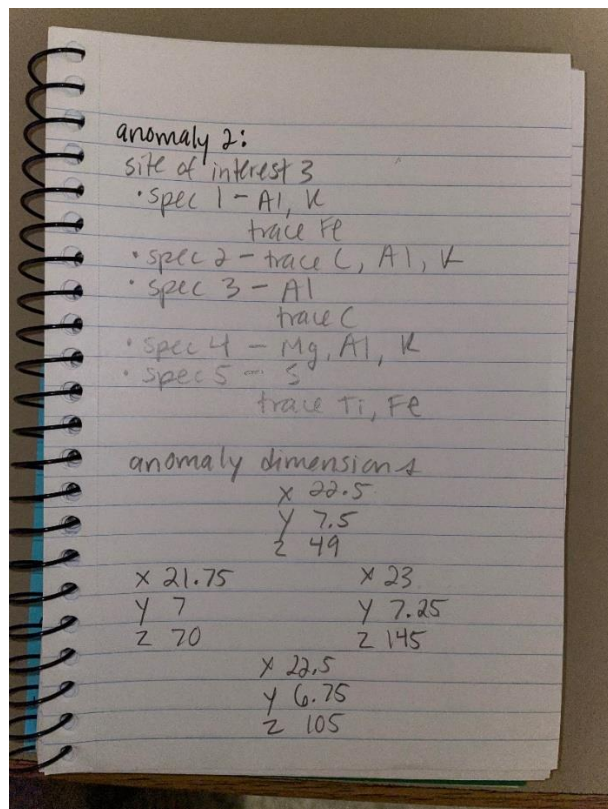 anomaly 2:
site of interest 3
• spec 1 - Al, K
trace Fe
• spec 2 - trace C, Al, K
• spec 3 - Al
trace C
• spec 4 - Mg, Al, K
• spec 5 - S
trace Ti, Fe
anomaly dimensions
X 22.5
Y 7.5
Z 49
X 21.75
Y 7
Z 70
X 23
Y 7.25
Z 145
X 22.5
Y 6.75
Z 105